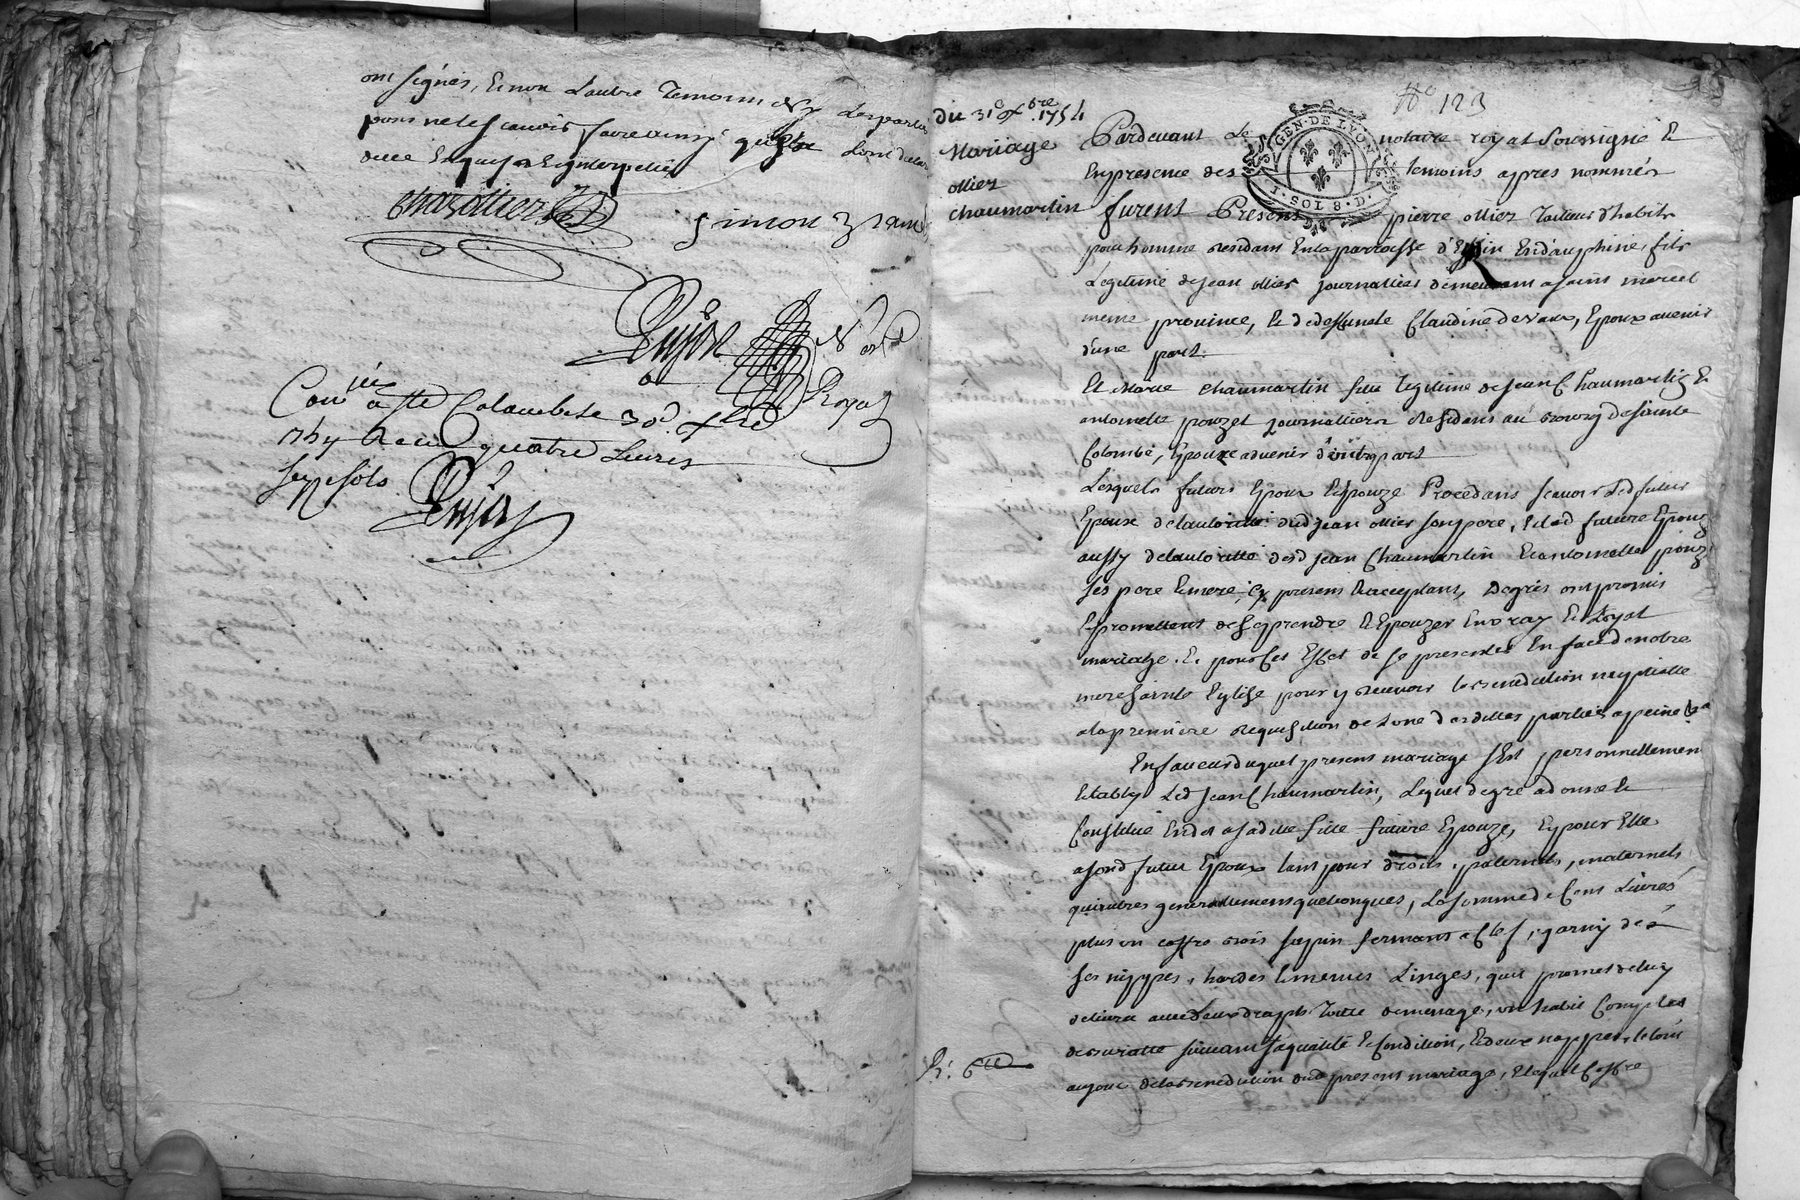 ont signés, Et non L'autre Temoin Ny Les parties
pour ne le scavoir faire ainsy qu'ils Lont declaré
de ce Enquis & Interpellés
Chazottier
simon
Pujos Nore
Royal
Con^lé a Ste Colombe le 30d. xbre
1754 Recu quatre Livres
seize sols
Pujos
N° 123
du 31e xbre 1754
Mariage
ollier
chaumartin
Pardevant Le notaire royal Soussigné Et
En presence des temoins apres nommés
furent Presens pierre ollier Tailleur d'habits
GEN. DE LYON
1. SOL 8. D.
pour homme residant En la parroisse d' En dauphiné, fils
Legitime de jean ollier journallier demeurant a saint marcel
meme province, Et de deffunte Claudine devaux, Epoux avenir
d'une part.
Et Marie chaumartin fille legitime de jean Chaumartin Et
antoinette pouzet journalliers residans au bourg de sainte
Colombe, Epouze advenir d'autre part
Lesquels futurs Epoux Et Epouze Procedans scavoir Led futur
Epoux de l'autorité dud jean ollier son pere, Et lad future Epouze
aussy de l'autorité desd jean Chaumartin Et antoinette pouzet
ses pere Et mere, Cy presens Et acceptans, de grés ont promis
Et promettent de se prendre Et Epouzer En vray Et Loyal
mariage. Et pour Cet Effet de se presenter En face de notre
mere sainte Eglise pour y recevoir la benediction nuptialle
a la premiere requisition de L'une desdittes parties a peine &a
En faveur duquel present mariage s'Est personnellement
Etably Led jean Chaumartin, Lequel de gré a donné Et
Constitué En dot a sa ditte fille future Epouze, Et pour Elle
a sond futur Epoux tant pour droits paternels, maternels
qu'autres generallement quelconques, La somme de Cent Livres
plus un coffre bois sappin fermant a Clef, garny de
ses nippes, hardes Et menus Linges, qu'il promet de luy
delivrer avec deux draps Toille de menage, un habit Complet
de suivant sa qualité Et Condition, Et deux nappes, le tout
au jour de la benediction dud present mariage, Et lequel Coffre
R. 6tt